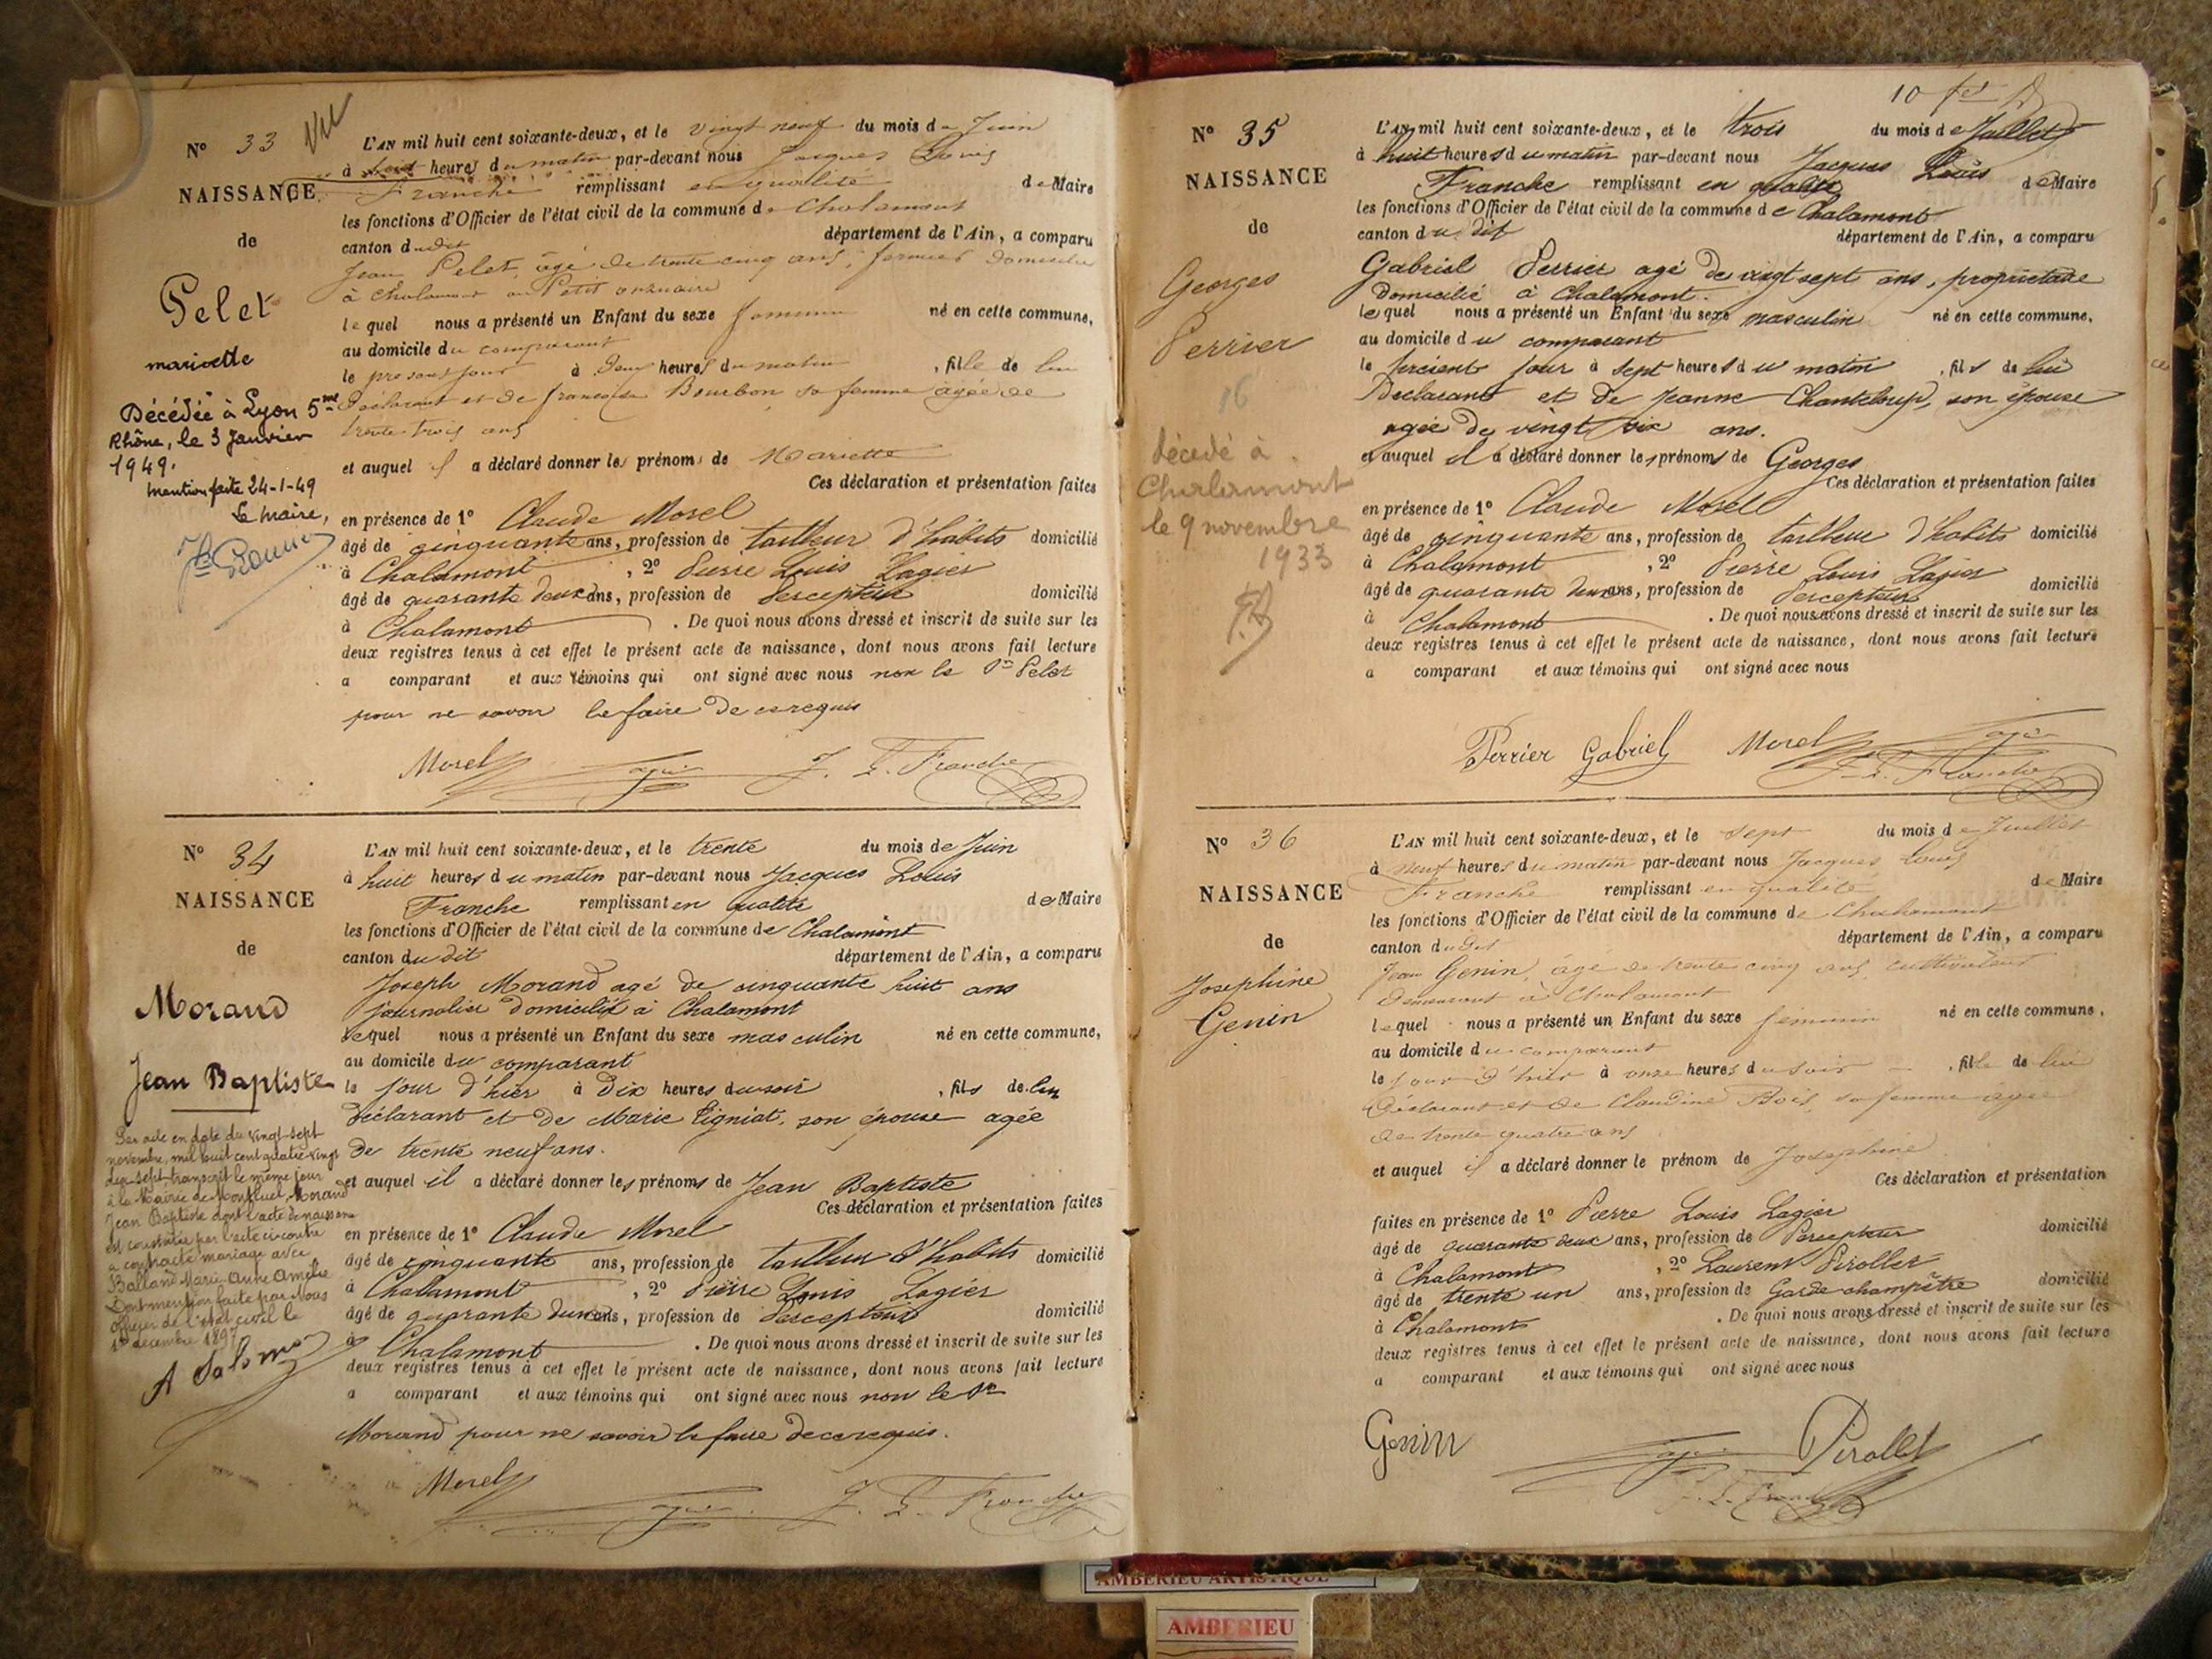 N° 33
Vu
NAISSANCE
de
Pelet
mariette
Décédée à Lyon 5me
Rhône, le 3 Janvier
1949.
Mention faite 24-1-49
Le Maire,
L'AN mil huit cent soixante-deux, et le vingt neuf du mois de Juin
à heures du matin par-devant nous Jacques Louis
Franche remplissant en qualité de Maire
les fonctions d'Officier de l'état civil de la commune de Chalamont
canton dudit département de l'Ain, a comparu
Jean Pelet, âgé de trente cinq ans, fermier domicilié
à Chalamont au Petit
lequel nous a présenté un Enfant du sexe féminin né en cette commune,
au domicile du comparant
le présent jour à deux heures du matin, fille de lui
Déclarant et de françoise Bourbon sa femme âgée de
trente trois ans
et auquel il a déclaré donner les prénoms de Mariette
Ces déclaration et présentation faites
en présence de 1° Claude Morel
âgé de cinquante ans, profession de tailleur d'habits domicilié
à Chalamont, 2° Pierre Louis Lagier
âgé de quarante deux ans, profession de Percepteur domicilié
à Chalamont. De quoi nous avons dressé et inscrit de suite sur les
deux registres tenus à cet effet le présent acte de naissance, dont nous avons fait lecture
a comparant et aux témoins qui ont signé avec nous non le Sr Pelet
pour ne savoir le faire de ce requis
Morel Lagier J. L. Franche
N° 34
NAISSANCE
de
Morand
Jean Baptiste
Par acte en date du vingt-sept
novembre, mil huit cent quatre vingt
dix-sept transcrit le même jour
à la Mairie de Montluel, Morand
Jean Baptiste dont l'acte de naissance
est constatée par l'acte ci-contre
a contracté mariage avec
Balland Marie Anne Amélie
Dont mention faite par Nous
officier de l'état civil le
1er décembre 1897
L'AN mil huit cent soixante-deux, et le trente du mois de Juin
à huit heures du matin par-devant nous Jacques Louis
Franche remplissant en qualité de Maire
les fonctions d'Officier de l'état civil de la commune de Chalamont
canton du dit département de l'Ain, a comparu
Joseph Morand agé de cinquante huit ans
journalier domicilié à Chalamont
lequel nous a présenté un Enfant du sexe masculin né en cette commune,
au domicile du comparant
le jour d'hier à Dix heures du soir, fils de lui
déclarant et de Marie Tigniat, son épouse agée
de trente neuf ans.
et auquel il a déclaré donner les prénoms de Jean Baptiste
Ces déclaration et présentation faites
en présence de 1° Claude Morel
âgé de cinquante ans, profession de tailleur d'habits domicilié
à Chalamont, 2° Pierre Louis Lagier
âgé de quarante deux ans, profession de Percepteur domicilié
à Chalamont. De quoi nous avons dressé et inscrit de suite sur les
deux registres tenus à cet effet le présent acte de naissance, dont nous avons fait lecture
a comparant et aux témoins qui ont signé avec nous non le Sr
Morand pour ne savoir le faire de ce requis.
Morel Lagier J. L. Franche
10
N° 35
NAISSANCE
de
Georges
Perrier
16
décédé à
Chalamont
le 9 novembre
1933
L'AN mil huit cent soixante-deux, et le trois du mois de Juillet
à huit heures du matin par-devant nous Jacques Louis
Franche remplissant en qualité de Maire
les fonctions d'Officier de l'état civil de la commune de Chalamont
canton du dit département de l'Ain, a comparu
Gabriel Perrier agé de vingt sept ans, propriétaire
domicilié à Chalamont.
lequel nous a présenté un Enfant du sexe masculin né en cette commune,
au domicile du comparant
le présent jour à sept heures du matin, fils de lui
Déclarant et de Jeanne Chanteloup, son épouse
agée de vingt six ans.
et auquel il a déclaré donner les prénoms de Georges
Ces déclaration et présentation faites
en présence de 1° Claude Morel
âgé de cinquante ans, profession de tailleur d'habits domicilié
à Chalamont, 2° Pierre Louis Lagier
âgé de quarante deux ans, profession de Percepteur domicilié
à Chalamont. De quoi nous avons dressé et inscrit de suite sur les
deux registres tenus à cet effet le présent acte de naissance, dont nous avons fait lecture
a comparant et aux témoins qui ont signé avec nous
Perrier Gabriel Morel Lagier
J. L. Franche
N° 36
NAISSANCE
de
Josephine
Genin
L'AN mil huit cent soixante-deux, et le sept du mois de Juillet
à neuf heures du matin par-devant nous Jacques Louis
Franche remplissant en qualité de Maire
les fonctions d'Officier de l'état civil de la commune de Chalamont
canton dudit département de l'Ain, a comparu
Jean Genin, âgé de trente cinq ans, cultivateur
demeurant à Chalamont
lequel nous a présenté un Enfant du sexe féminin né en cette commune,
au domicile du comparant
le jour d'hier à onze heures du soir, fille de lui
Déclarant et de Claudine Bois, sa femme âgée
de trente quatre ans
et auquel il a déclaré donner le prénom de Josephine
Ces déclaration et présentation
faites en présence de 1° Pierre Louis Lagier
âgé de quarante deux ans, profession de Percepteur domicilié
à Chalamont, 2° Laurent Pirollet
âgé de trente un ans, profession de Garde champêtre domicilié
à Chalamont. De quoi nous avons dressé et inscrit de suite sur les
deux registres tenus à cet effet le présent acte de naissance, dont nous avons fait lecture
a comparant et aux témoins qui ont signé avec nous
Genin Lagier Pirollet
J. L. Franche
AMBERIEU ARTISTIQUE
AMBERIEU